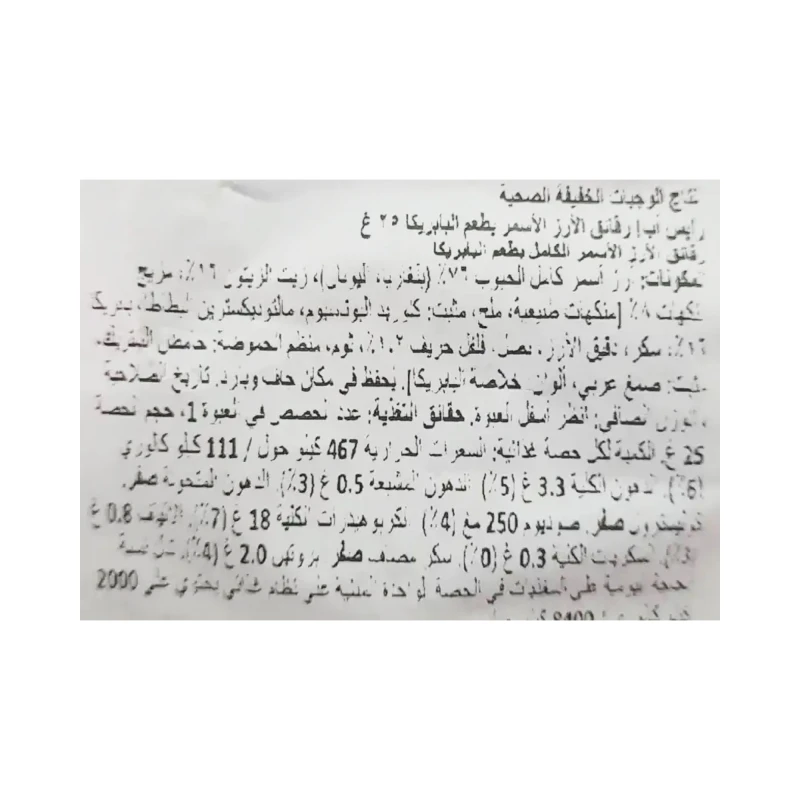 نتاج الوجبات الخفيفة الصحية
رايس أب | رقائق الأرز الأسمر بطعم البابريكا ٢٥ غ
رقائق الأرز الأسمر الكامل بطعم البابريكا
المكونات: أرز أسمر كامل الحبوب ٧٦٪ (بلغاريا، اليونان)، زيت الزيتون ١٦٪، مزيج
نكهات ٨٪ [منكهات طبيعية، ملح، مثبت: كلوريد البوتاسيوم، مالتوديكسترين البطاطا، بابريكا
سكر، دقيق الأرز، بصل، فلفل حريف ١.٢٪، ثوم، منظم الحموضة: حامض الستريك،
مثبت: صمغ عربي، ألوان: خلاصة البابريكا]. يحفظ في مكان جاف وبارد. تاريخ الصلاحية
والوزن الصافي: انظر أسفل العبوة. حقائق التغذية: عدد الحصص في العبوة 1، حجم الحصة
25 غ. الكمية لكل حصة غذائية: السعرات الحرارية 467 كيلو جول / 111 كيلو كالوري
(6٪). الدهون الكلية 3.3 غ (5٪) الدهون المشبعة 0.5 غ (3٪). الدهون المتحولة صفر.
كوليسترول صفر. صوديوم 250 مغ (4٪). الكربوهيدرات الكلية 18 غ (7٪). الألياف 0.8 غ
(3٪). السكريات الكلية 0.3 غ (0٪). سكر مضاف صفر. بروتين 2.0 غ (4٪).
يومية على في الحصة الواحدة المبنية على نظام غذائي يحتوي على 2000
8400